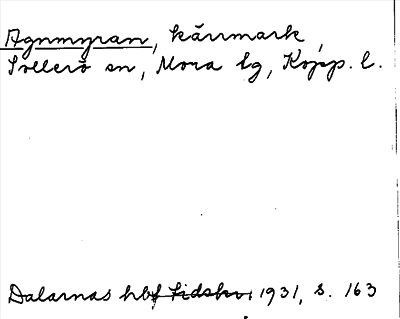 Agnmyran, kärrmark,
Sollerö sn, Mora lg, Kopp. l.
Dalarnas hbf tidskr. 1931, s. 163